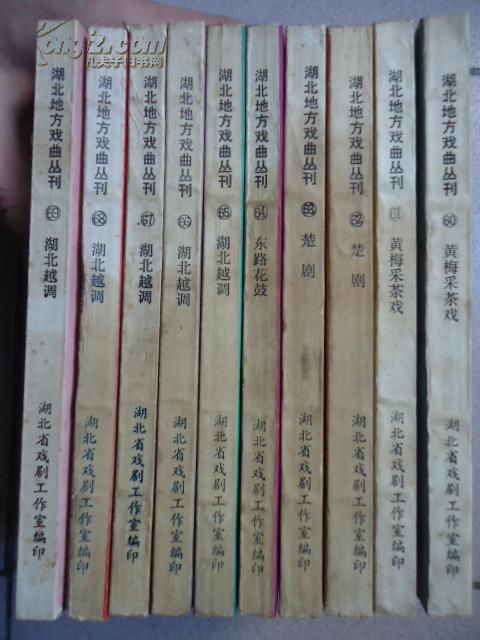 kongfz.com
孔夫子旧书网
湖北地方戏曲丛刊 69 湖北越调 湖北省戏剧工作室编印
湖北地方戏曲丛刊 68 湖北越调 湖北省戏剧工作室编印
湖北地方戏曲丛刊 67 湖北越调 湖北省戏剧工作室编印
湖北地方戏曲丛刊 66 湖北越调 湖北省戏剧工作室编印
湖北地方戏曲丛刊 65 湖北越调 湖北省戏剧工作室编印
湖北地方戏曲丛刊 64 东路花鼓 湖北省戏剧工作室编印
湖北地方戏曲丛刊 63 楚剧 湖北省戏剧工作室编印
湖北地方戏曲丛刊 62 楚剧 湖北省戏剧工作室编印
湖北地方戏曲丛刊 61 黄梅采茶戏 湖北省戏剧工作室编印
湖北地方戏曲丛刊 60 黄梅采茶戏 湖北省戏剧工作室编印